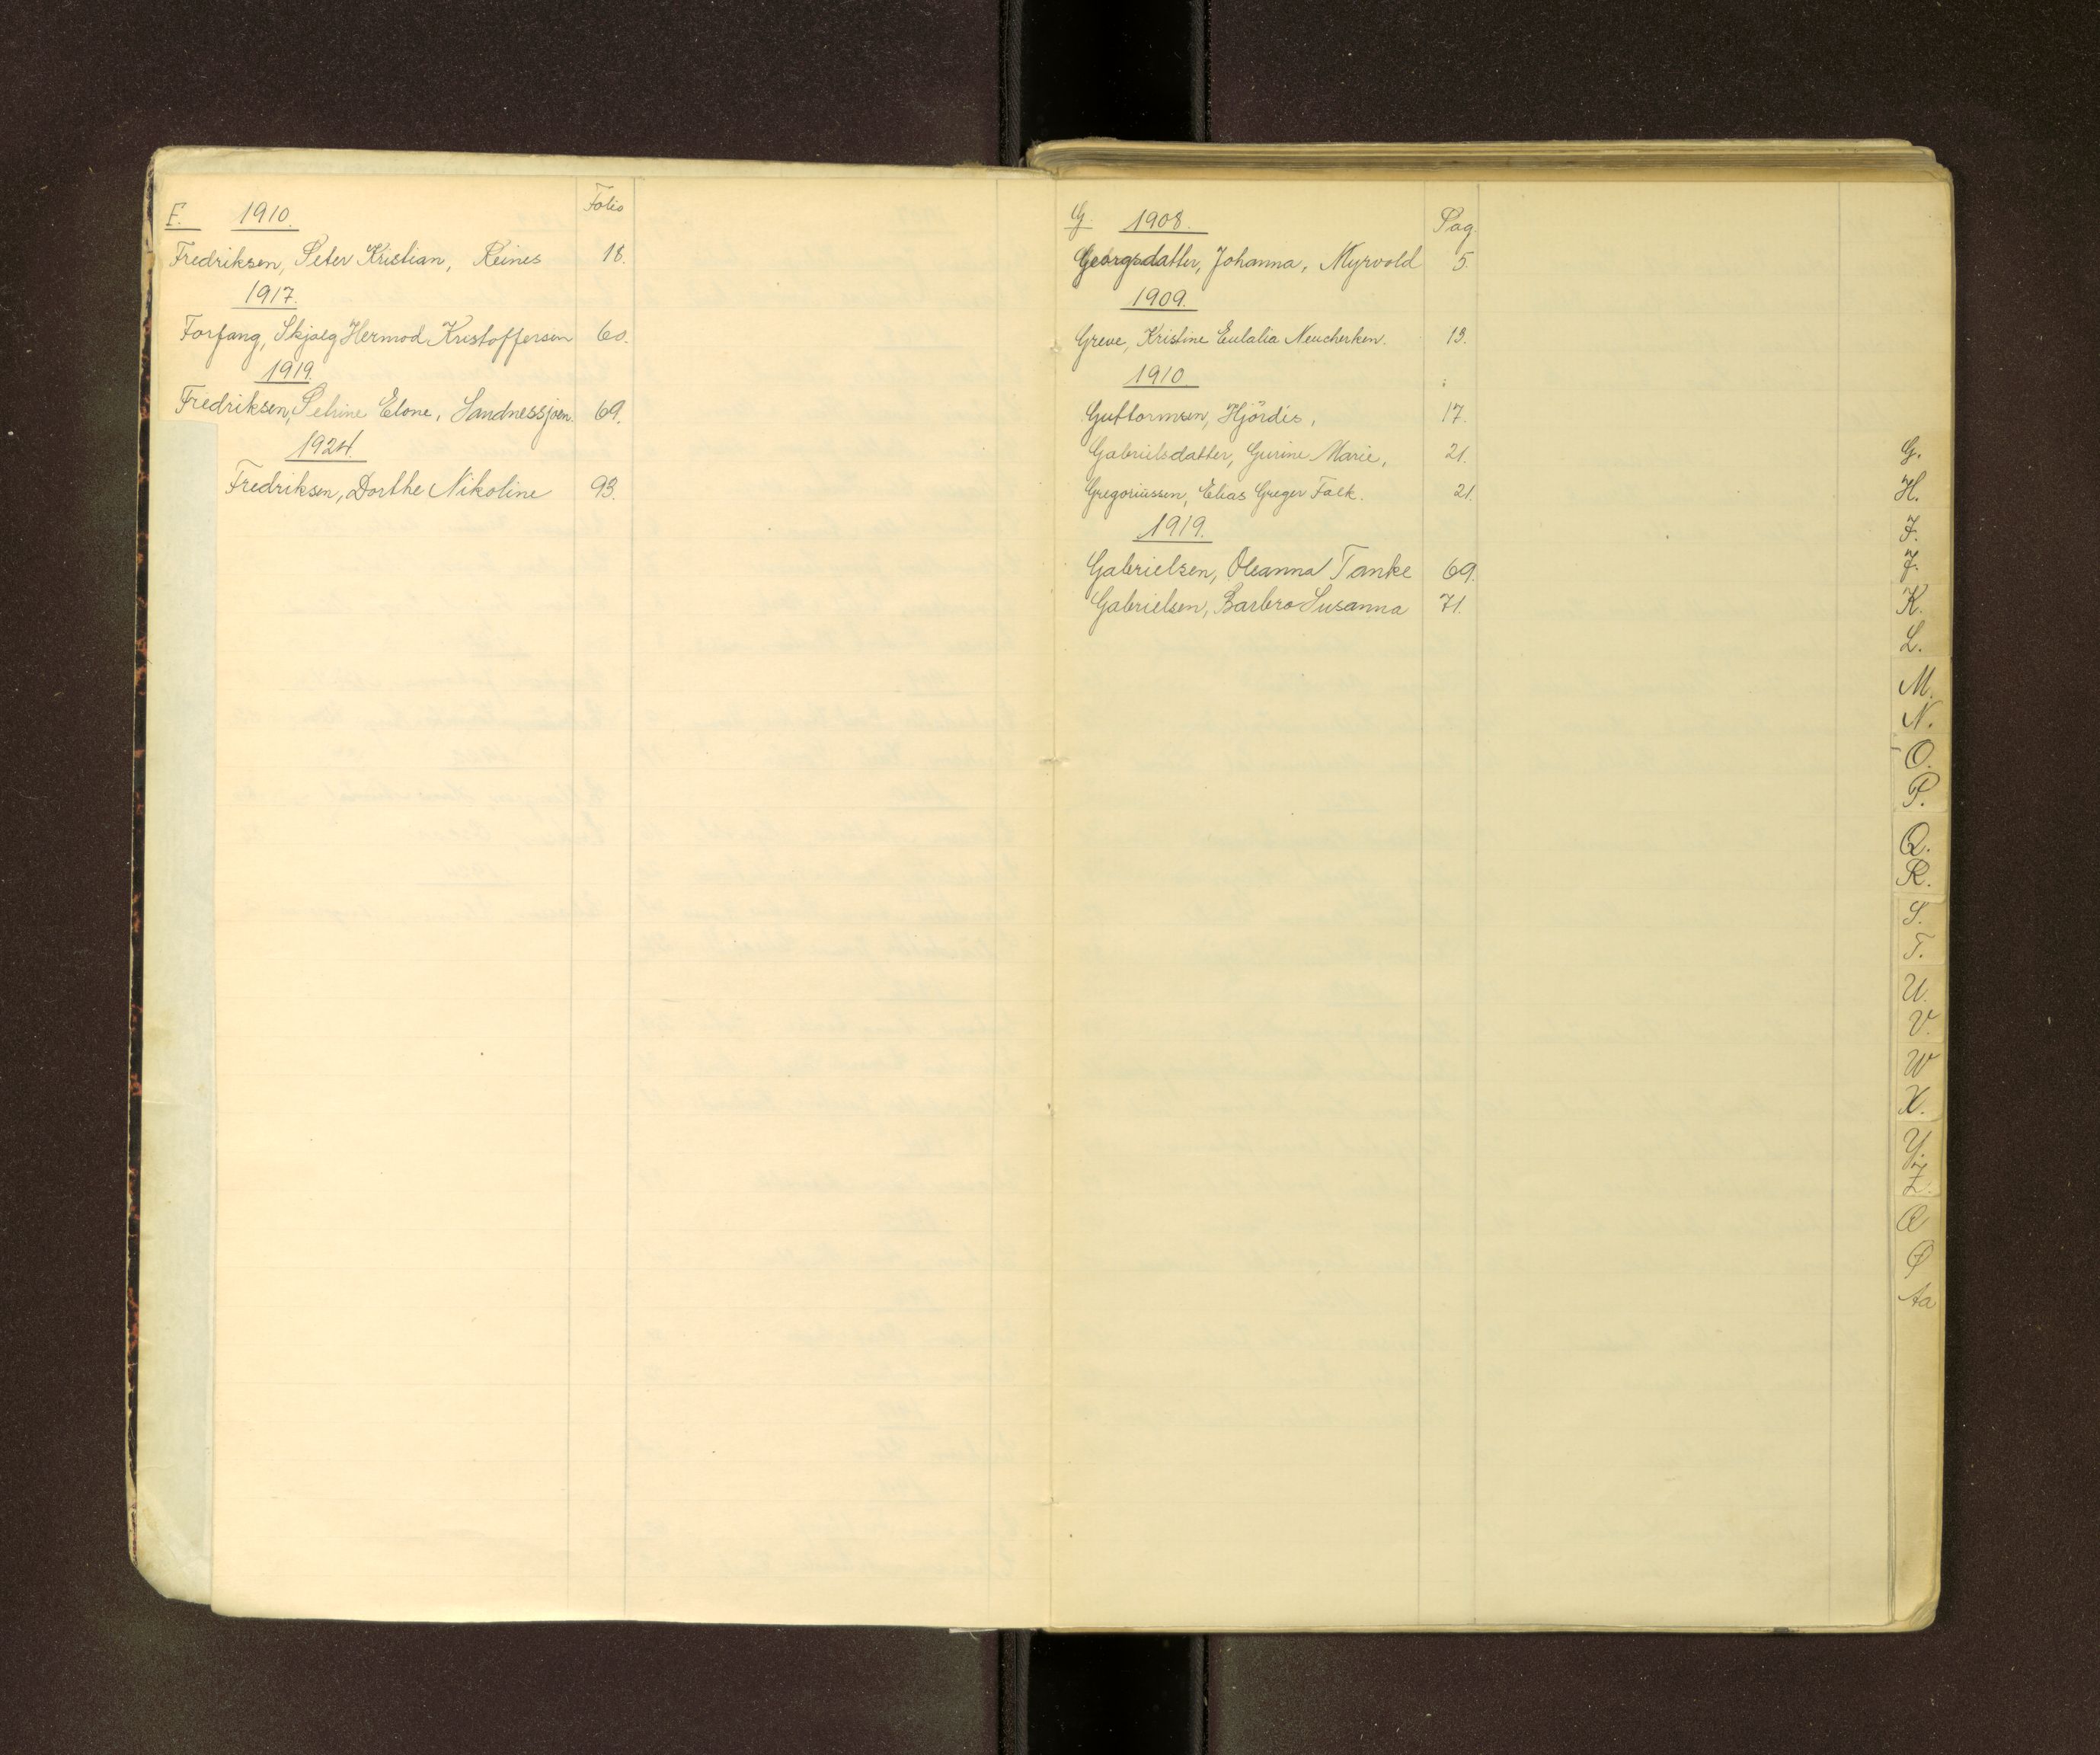 F. 1910. Folio
Fredriksen, Peter Kristian, Reines 18.
1917.
Forfang, Skjalg Hermod Kristoffersen 60.
1919.
Fredriksen, Petrine Elone, Sandnessjøen. 69.
1924.
Fredriksen, Dorthe Nikoline 93.
G. 1908. Pag.
Georgsdatter, Johanna, Myrvold 5.
1909.
Greve, Kristine Eulalia Neucherken. 13.
1910
Guttormsen, Hjördis, 17.
Gabrielsdatter, Gurine Marie, 21.
Gregoriussen, Elias Greger Falk. 21.
1919.
Gabrielsen, Oleanna Tanke 69.
Gabrielsen, Barbro Susanna 71.
G.
H.
I.
J.
K.
L.
M.
N.
O.
P.
Q.
R.
S.
T.
U.
V.
W
X.
Y.
Z.
Æ
Ø
Aa